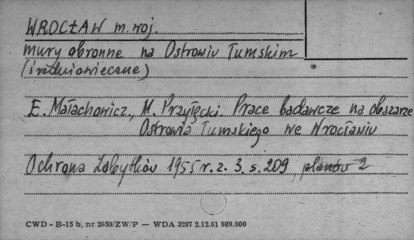 WROCŁAW m. woj.
mury obronne na Ostrowiu Tumskim
(średniowieczne)
E. Małachowicz, M. Przyłęcki. Prace badawcze na obszarze
Ostrowia Tumskiego we Wrocławiu
Ochrona Zabytków 1955 r. z. 3. s. 209, planów 2
CWD - B-15 b, nr 2659/ZW/P — WDA 3287 2.12.61 989.000